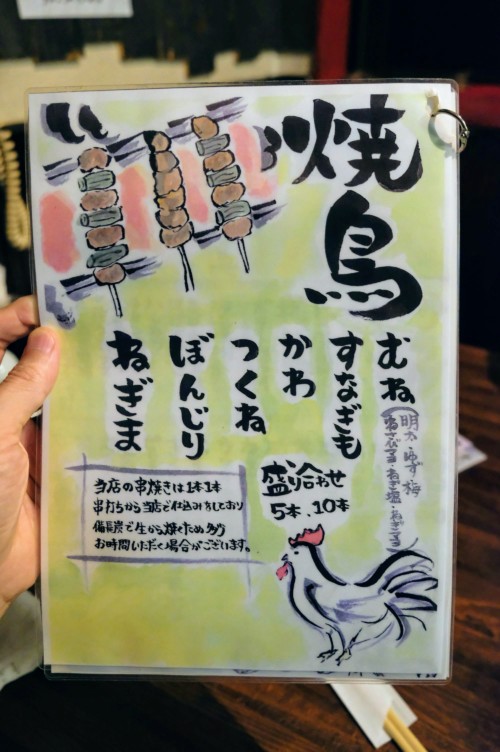 焼鳥
むね
(明太・ゆず梅
わさびマヨ・ねぎ塩・ねぎマヨ)
すなぎも
かわ
つくね
ぼんじり
ねぎま
盛り合わせ
5本、10本
当店の串焼きは1本1本
串打ちから当店で仕込みをしており
備長炭で生から焼くため多少
お時間いただく場合がございます。